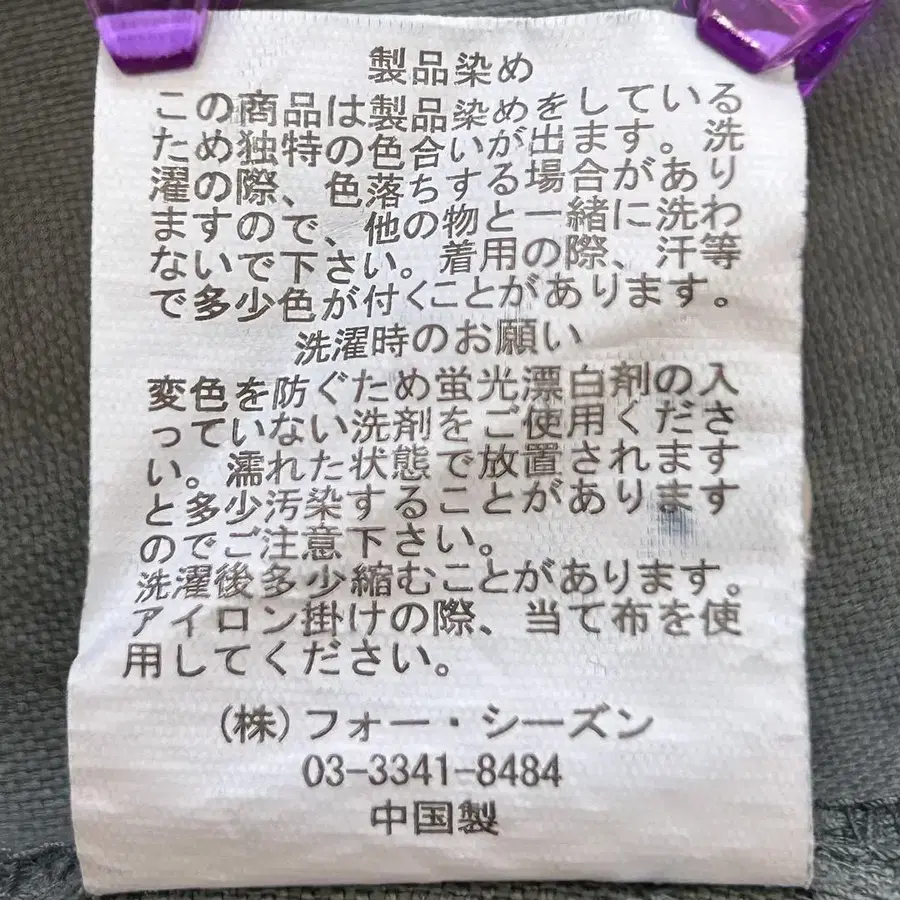 製品染め
この商品は製品染めをしている
ため独特の色合いが出ます。洗
濯の際、色落ちする場合があり
ますので、他の物と一緒に洗わ
ないで下さい。着用の際、汗等
で多少色が付くことがあります。
洗濯時のお願い
変色を防ぐため蛍光漂白剤の入
っていない洗剤をご使用くださ
い。濡れた状態で放置されます
と多少汚染することがあります
のでご注意下さい。
洗濯後多少縮むことがあります。
アイロン掛けの際、当て布を使
用してください。
(株)フォー・シーズン
03-3341-8484
中国製